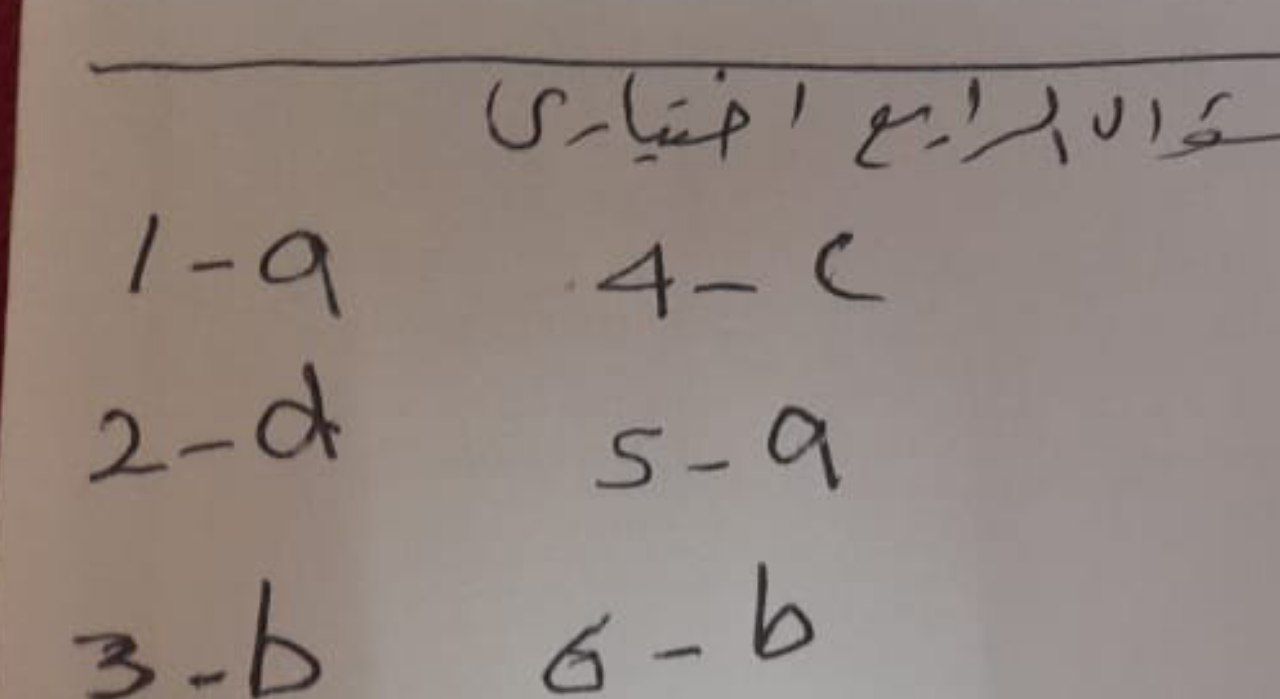 سؤال الرابع اختياري
1-a 4-c
2-d 5-a
3-b 6-b